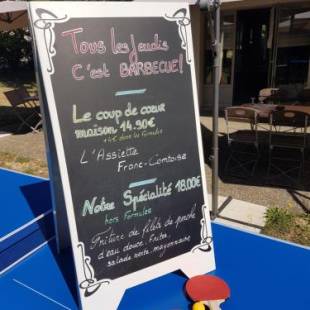 Tous les jeudis
C'est BARBECUE!
Le coup de coeur
maison 14.90€
+4€ dans les Formules
L'Assiette
Franc-Comtoise
Notre Spécialité 18.00€
hors Formules
Friture de filets de perche
d'eau douce, frites,
salade verte, mayonnaise